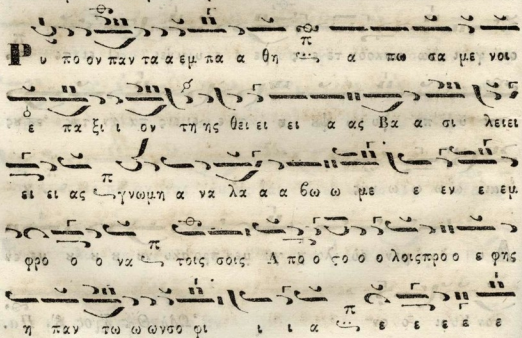 Ρ υ πο ον παν τα α εμ πα α θη π α πω σα με νοι
ε πα ξι ι ον τη ης θει ει ει α ας Βα α σι λειει
ει ει ας π γνωμη α να λα α α βω ω με ε εν ε εμ
φρο ο ο να π τοις σοις Α πο ο το ο ο λοις προ ο ε φης
η παν τω ω ωνσο φι ι ι α π ε ε ε ε ε ε